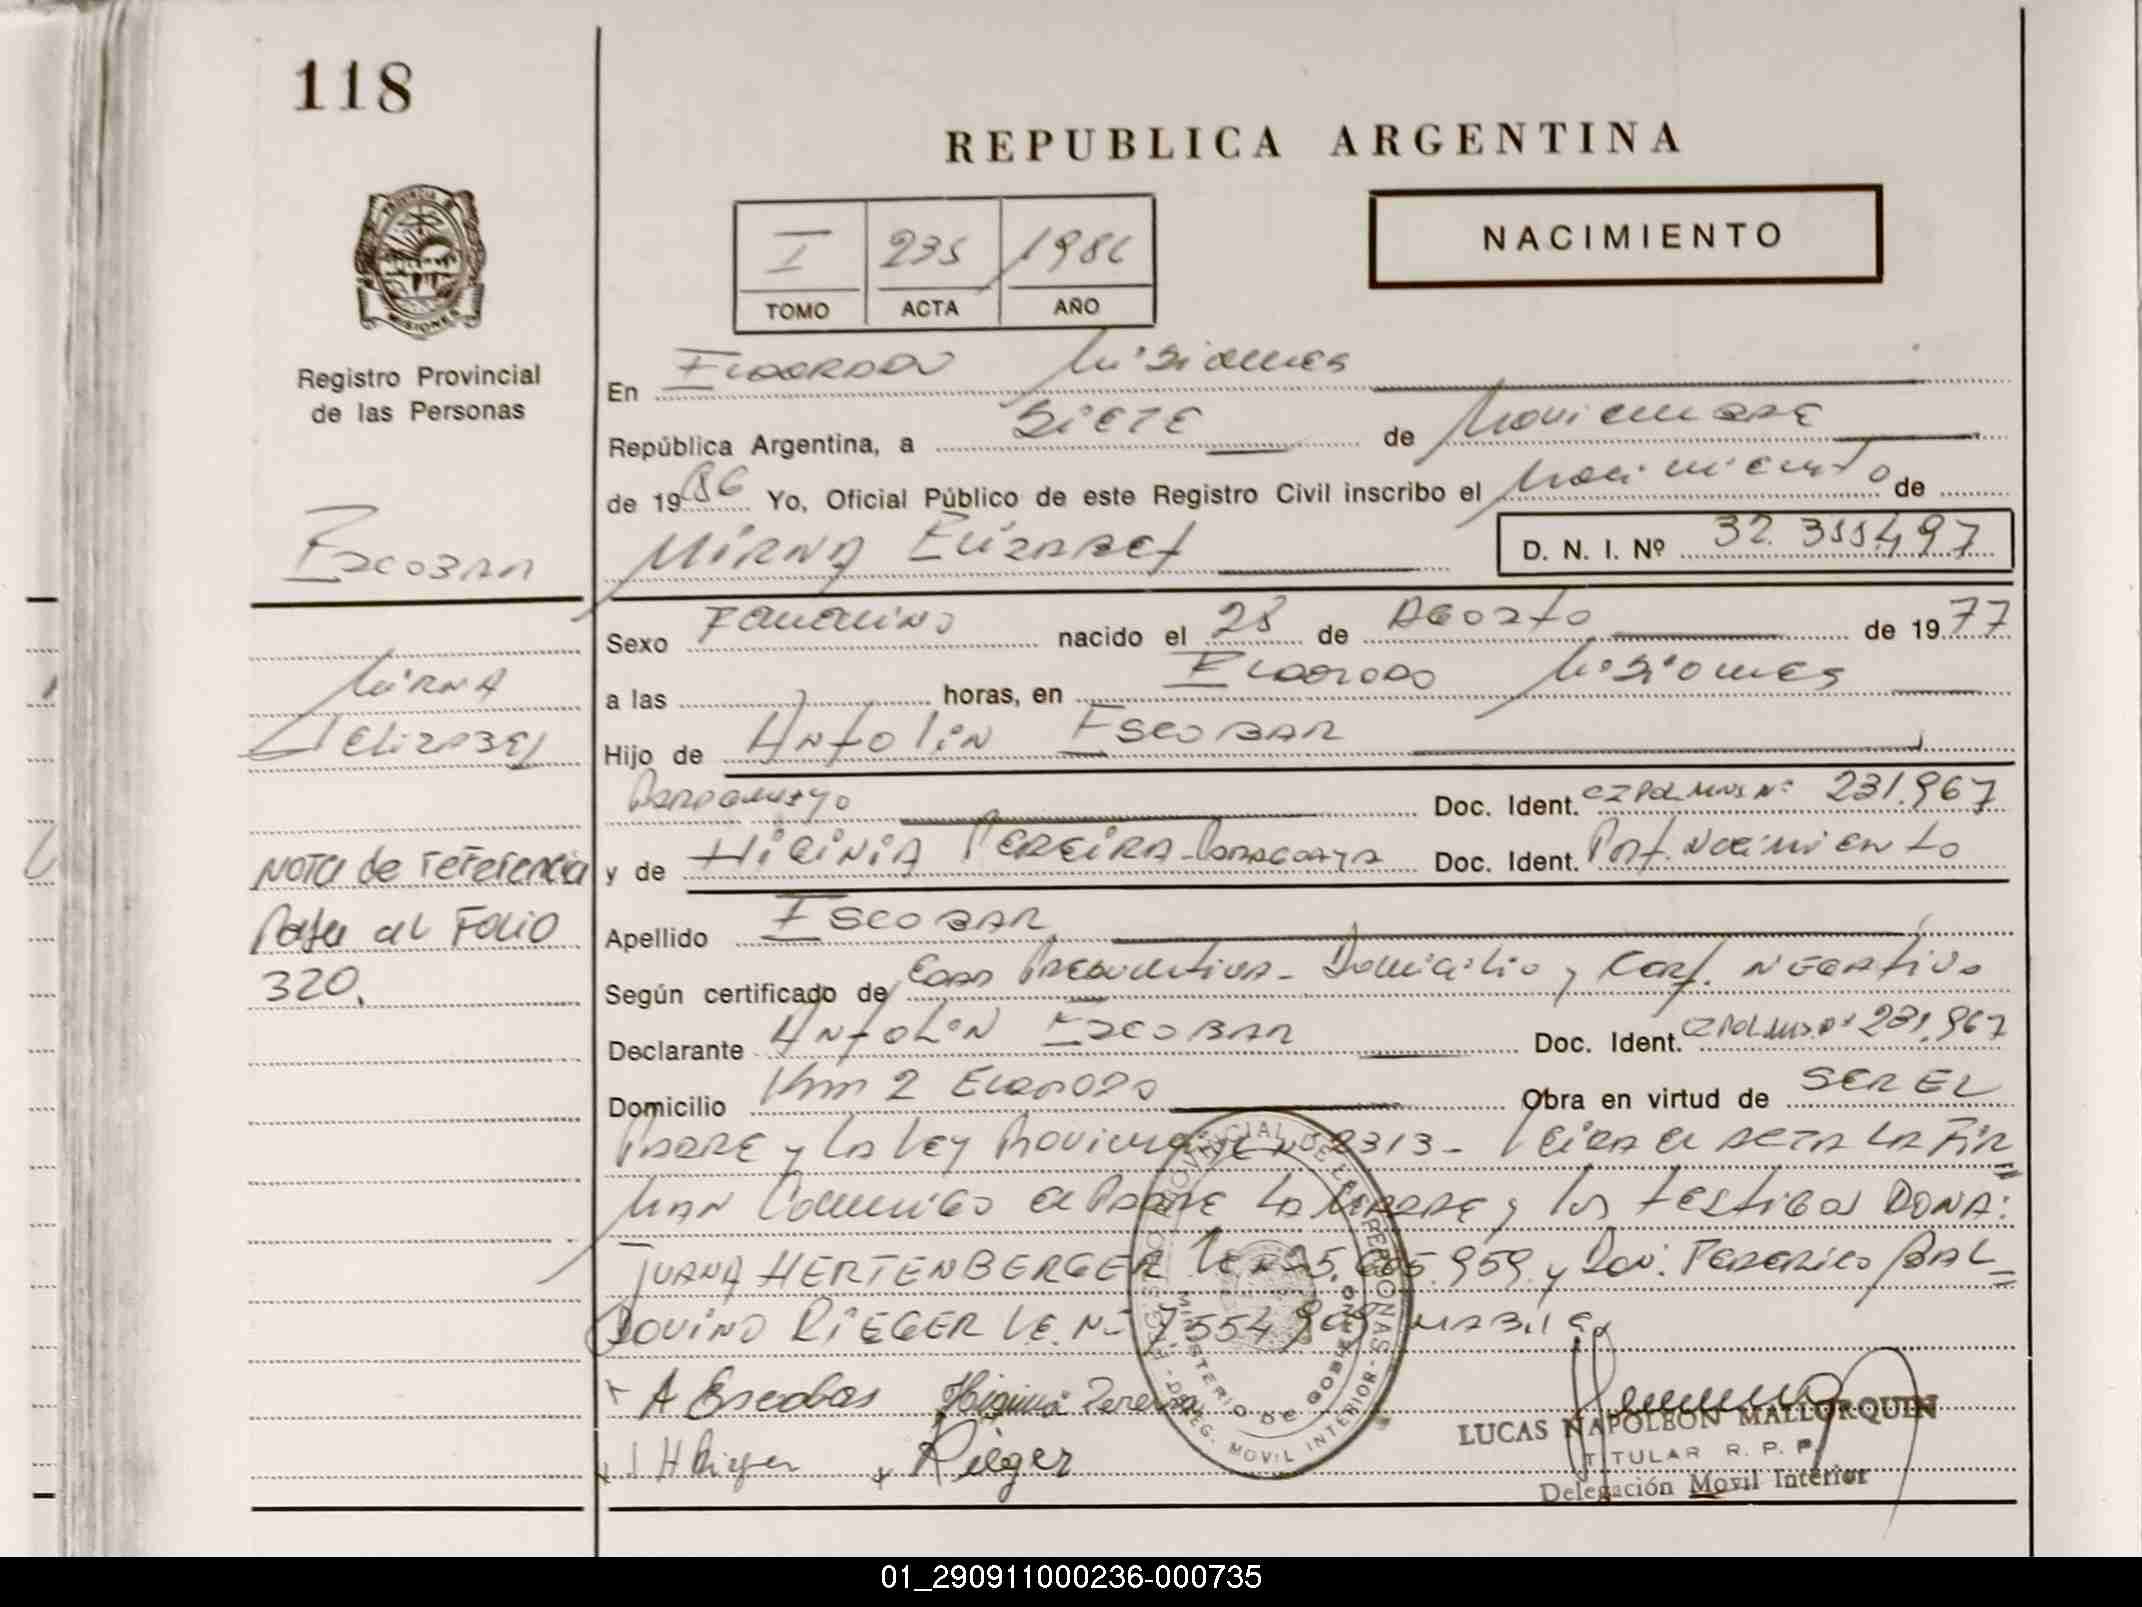 118
REPUBLICA ARGENTINA
I 235 1986
TOMO ACTA AÑO
NACIMIENTO
PROVINCIA DE MISIONES
Registro Provincial
de las Personas
En ELDORADO Misiones
República Argentina, a SIETE de Noviembre
de 1986 Yo, Oficial Público de este Registro Civil inscribo el Nacimiento de
ESCOBAR
MIRNA ELIZABET D. N. I. Nº 32.355.497
Sexo FEMENINO nacido el 28 de AGOSTO de 1977
MIRNA
ELIZABET
a las horas, en ELDORADO Misiones
Hijo de ANTOLIN ESCOBAR
Paraguayo Doc. Ident. CI POL MNS Nº 231.967
y de HIGINIA PEREIRA - Paraguaya Doc. Ident. Part. Nacimiento
Nota de referencia
Pasa al Folio
320.
Apellido ESCOBAR
Según certificado de Edad Presuntiva - Domicilio y Cert. NEGATIVO
Declarante ANTOLIN ESCOBAR Doc. Ident. CI POL MNS Nº 231.967
Domicilio Km 2 ELDORADO Obra en virtud de SER EL
PADRE y LA Ley Provincial Nº 2313 - Leida el ACTA LA FIR
MAN Conmigo el PADRE LA MADRE y los testigos DOÑA:
JUANA HERTENBERGER 959 y Don: FEDERICO BAL
DOVINO RIEGER L.E. Nº 7554909
A Escobar Higinia Pereira
Rieger
REGISTRO PROVINCIAL DE LAS PERSONAS
MINISTERIO DE GOBIERNO
DELEG. MOVIL INTERIOR
LUCAS NAPOLEON MALLORQUIN
TITULAR R. P. P.
Delegación Movil Interior
01_290911000236-000735